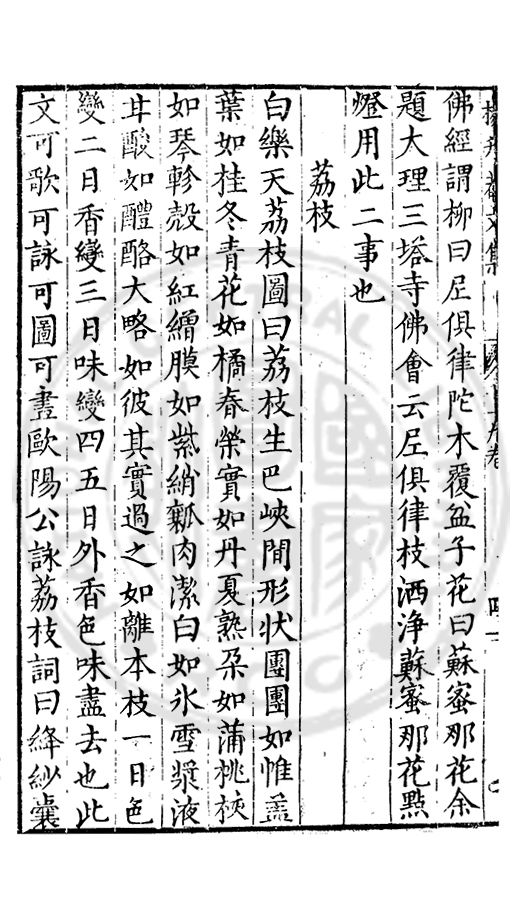 佛經謂柳曰尼俱律陀木覆盆子花曰蘇蜜那花余
題大理三塔寺佛會云尼俱律枝洒淨蘇蜜那花點
燈用此二事也
荔枝
白樂天荔枝圖曰荔枝生巴峽間形狀團團如惟盖
葉如桂冬青花如橘春榮實如丹夏熟朶如蒲桃核
如琴軫殼如紅繒膜如紫綃瓤肉潔白如氷雪漿液
甘酸如醴酪大略如彼其實過之如離本枝一日色
變二日香變三日味變四五日外香色味盡去也此
文可歌可詠可圖可畫歐陽公詠荔枝詞曰絳紗囊